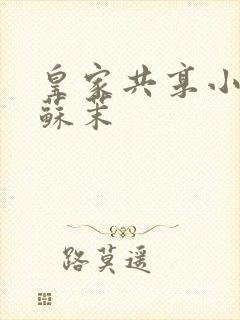 皇家共享小
蘇茉
路莫遥